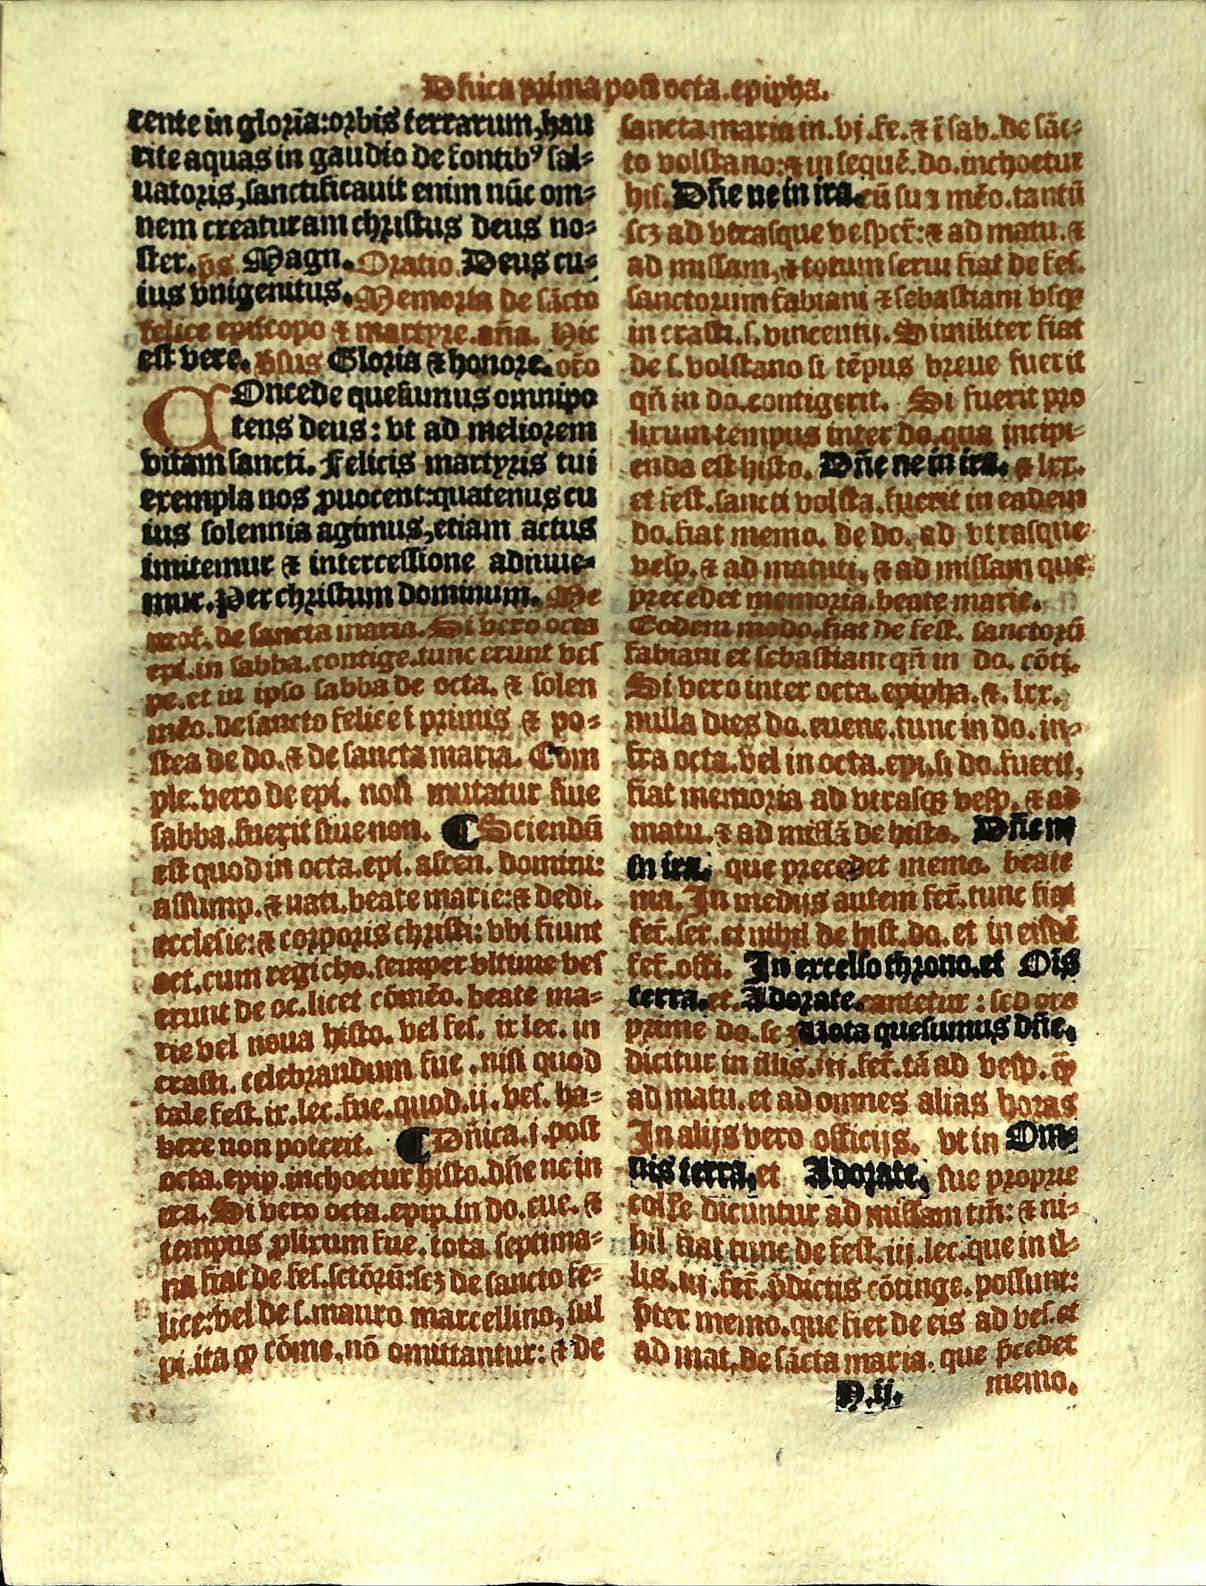 Dñica prima post octa.epipha.
rente in gloria:orbis terrarum,hau
rite aquas in gaudio de fontibꝰ sal⸗
uatoris,sanctificauit enim nũc om⸗
nem creaturam christus deus no⸗
ster.p̃s Magn.Oratio.Deus cu⸗
ius vnigenitus.Memoria de sãcto
felice episcopo ⁊ martyre.aña. Hic
est vere. v̉sus Gloria ⁊ honore. or̃o
COncede quesumus omnipo
tens deus: vt ad meliorem
vitam sancti. Felicis martyris tui
exempla nos ꝓuocent:quatenus cu
ius solennia agimus,etiam actus
imitemur ⁊ intercessione adiuue⸗
mur.Per christum dominum. Me
mor. de sancta maria. Si vero octa
epi.in sabba.contige.tunc erunt ves
pe.et in ipso sabba de octa. ⁊ solen
mẽo.de sancto felice ĩ primis ⁊ po⸗
stea de do.⁊ de sancta maria. Com
ple.vero de epi. non mutatur siue
sabba.fuerit siue non. ¶ Sciendũ
est quod in octa.epi.ascen. domini:
assump.⁊ nati.beate marie:⁊ dedi.
ecclesie:⁊ corporis christi: vbi fiunt
oct.cum regi cho.semper vltime ves
erunt de oc.licet cõmẽo.beate ma⸗
rie vel noua histo. vel fes. ix lec. in
crasti. celebrandum fue. nisi quod
tale fest.ix.lec.fue.quod.ij.ves. ha⸗
bere non poterit. ¶ Dñica.j.post
octa.epip.inchoetur histo.dñe ne in
ira. Si vero octa.epip.in do.eue. ⁊
tempus ꝓlixum fue. tota septima⸗
na fiat de fes.sctõrũ:scꝫ de sancto fe⸗
lice:vel de s.mauro marcellino, sul
pi.ita ꝙ cõme.nõ omittantur: ⁊ de
sancta maria in.vj.fe.⁊ ĩ sab.de sãc⸗
to volstano:⁊ in sequẽ.do.inchoetur
his. Dñe ne in ira.cũ su ꝛ mẽo.tantũ
scꝫ ad vtrasque vesper̃:⁊ ad matu.⁊
ad missam,⁊ totum serui fiat de fes.
sanctorum fabiani ⁊ sebastiani vsqꝫ
in crasti.s.vincentij. Similiter fiat
de s.volstano si tẽpus breue fuerit
qñ in do.contigerit. Si fuerit pro
lixum tempus inter do.qua incipi⸗
enda est histo. Dñe ne in ira. ⁊ lxx.
et fest.sancti volsta.fuerit in eadem
do.fiat memo. de do. ad vtrasque
vesp. ⁊ ad matuti. ⁊ ad missam que
precedet memoria.beate marie.
Eodem modo.fiat de fest. sanctorũ
fabiani et sebastiani qñ in do. cõti.
Si vero inter octa.epipha.⁊. lxx.
nulla dies do.euene.tunc in do. in⸗
fra octa.vel in octa.epi.si do.fuerit,
fiat memoria ad vtrasqꝫ vesp. ⁊ ad
matu.⁊ ad missã de histo. Dñe ne
in ira. que precedet memo. beate
ma. In medijs autem fer̃.tunc fiat
fer̃.ser. et nihil de hist.do. et in eisdẽ
fer̃.offi. In excelso throno.et Oĩs
terra.et Adorate.cantetur: sed oro
prime do.scꝫ Uota quesumus dñe.
dicitur in illis.iij.fer̃.tã ad vesp. ꝙ̃
ad matu.et ad omnes alias horas
In alijs vero officijs. vt in Om⸗
nis terra,et Adorate, sue proprie
colle dicuntur ad missam tm̃: ⁊ ni⸗
hil fiat tunc de fest.iij.lec.que in il⸗
lis.iij.fer̃.p̃dictis cõtinge.possunt:
p̃ter memo.que fiet de eis ad ves.et
ad mat.de sãcta maria. que p̃cedet
N.ij. memo.